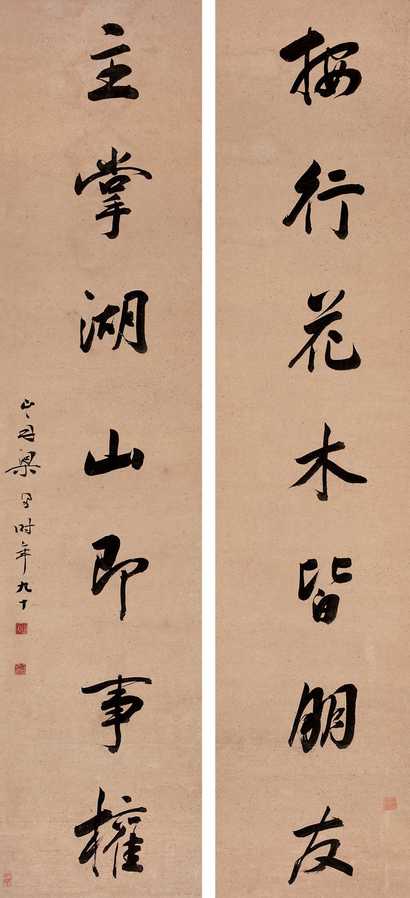 按行花木皆朋友
主掌湖山即事權
山舟梁同書時年九十